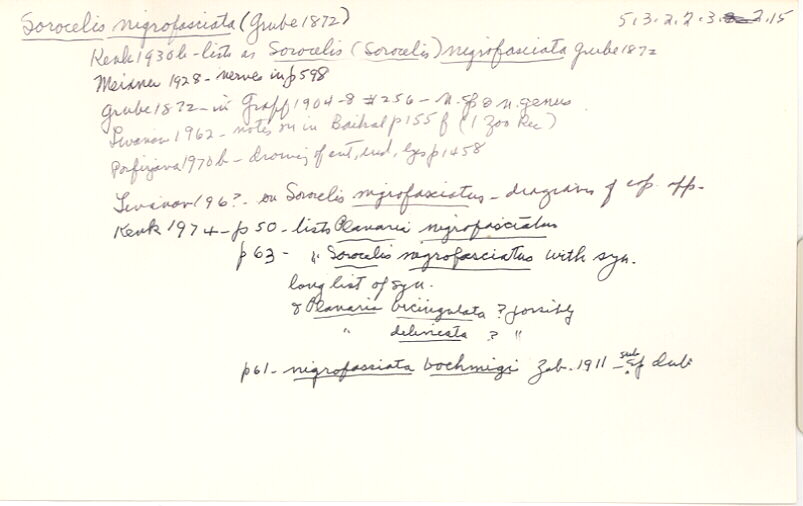 Sorocelis nigrofasciata (Grube 1872) 5.3.2.2.3. 2.15
Kenk 1930b - lists as Sorocelis (Sorocelis) nigrofasciata Grube 1872
Meixner 1928 - nerves in p 598
Grube 1872 - in Graff 1904-8 #256 - n. sp & n. genus
Livanov 1962 - notes on in Baikal p 155 f (1 Zoo Rec)
Porfirjeva 1970b - drowing of ent, end, eyes p 1458
Livanov 196? - on Sorocelis nigrofasciatus - diagrams of cop. app.
Kenk 1974 - p 50 - lists Planaria nigrofasciatus
p 63 - " Sorocelis nigrofasciatus with syn.
long list of syn.
& Planaria bicingulata ? possibly
" delineata ? "
p 61 - nigrofasciata boehmigi Zab. 1911 - sub sp dub